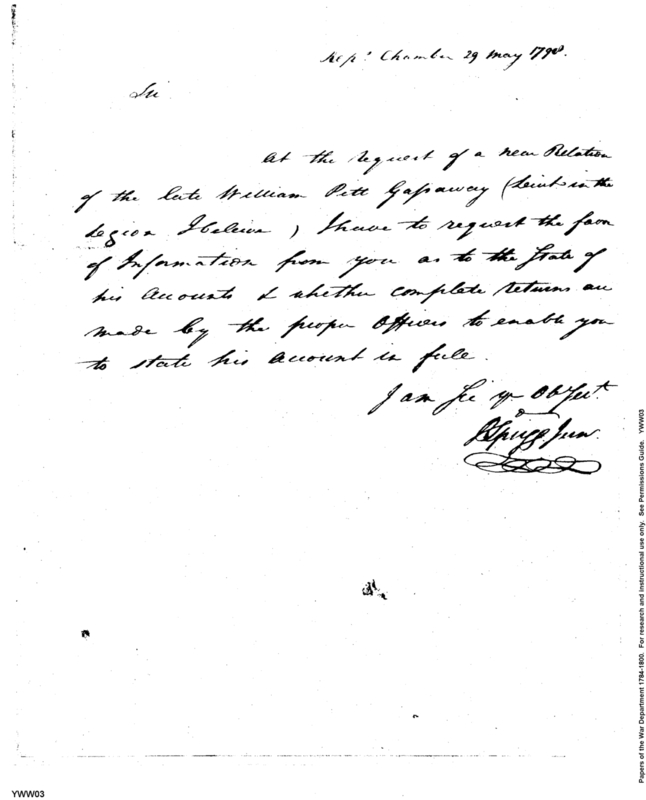 Rep.s Chamber 29 May 1798.
Sir
At the request of a near Relation
of the late William Pitt Gassaway (Lieut in the
Legion I beleive) I have to request the favor
of Information from you as to the State of
his Accounts & whether complete returns are
made by the proper Officers to enable you
to state his Account in full.
I am Sir yr Ob Sert
R Sprigg Jun.
YWW03
Papers of the War Department 1784-1800. For research and instructional use only. See Permissions Guide. YWW03